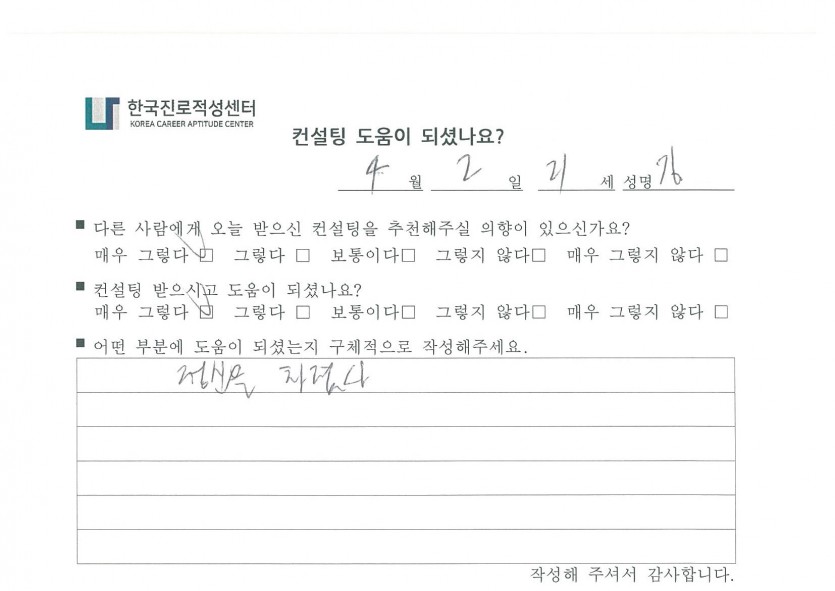 한국진로적성센터
KOREA CAREER APTITUDE CENTER
컨설팅 도움이 되셨나요?
4 월 2 일 21 세 성명 김
■ 다른 사람에게 오늘 받으신 컨설팅을 추천해주실 의향이 있으신가요?
매우 그렇다 ☑ 그렇다 □ 보통이다□ 그렇지 않다□ 매우 그렇지 않다 □
■ 컨설팅 받으시고 도움이 되셨나요?
매우 그렇다 ☑ 그렇다 □ 보통이다□ 그렇지 않다□ 매우 그렇지 않다 □
■ 어떤 부분에 도움이 되셨는지 구체적으로 작성해주세요.
정신을 차렸다
작성해 주셔서 감사합니다.